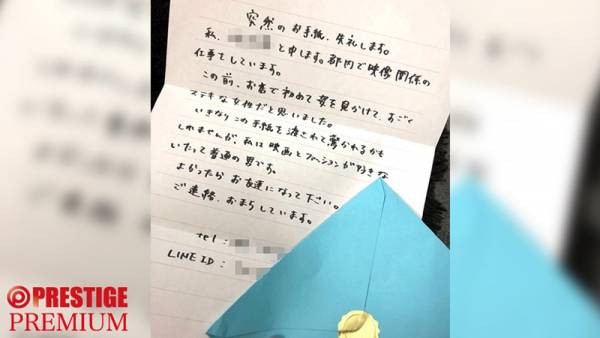 突然のお手紙、失礼します。
私、と申します。都内で映像関係の
仕事をしています。
この前、お店で初めて姿を見かけて、すごく
ステキな女性だと思いました。
いきなりこの手紙を渡されて驚かれるかも
しれませんが、私は映画とファッションが好きな
いたって普通の男です。
よかったらお友達になって下さい。
ご連絡、おまちしています。
tel :
LINE ID :
PRESTIGE
PREMIUM